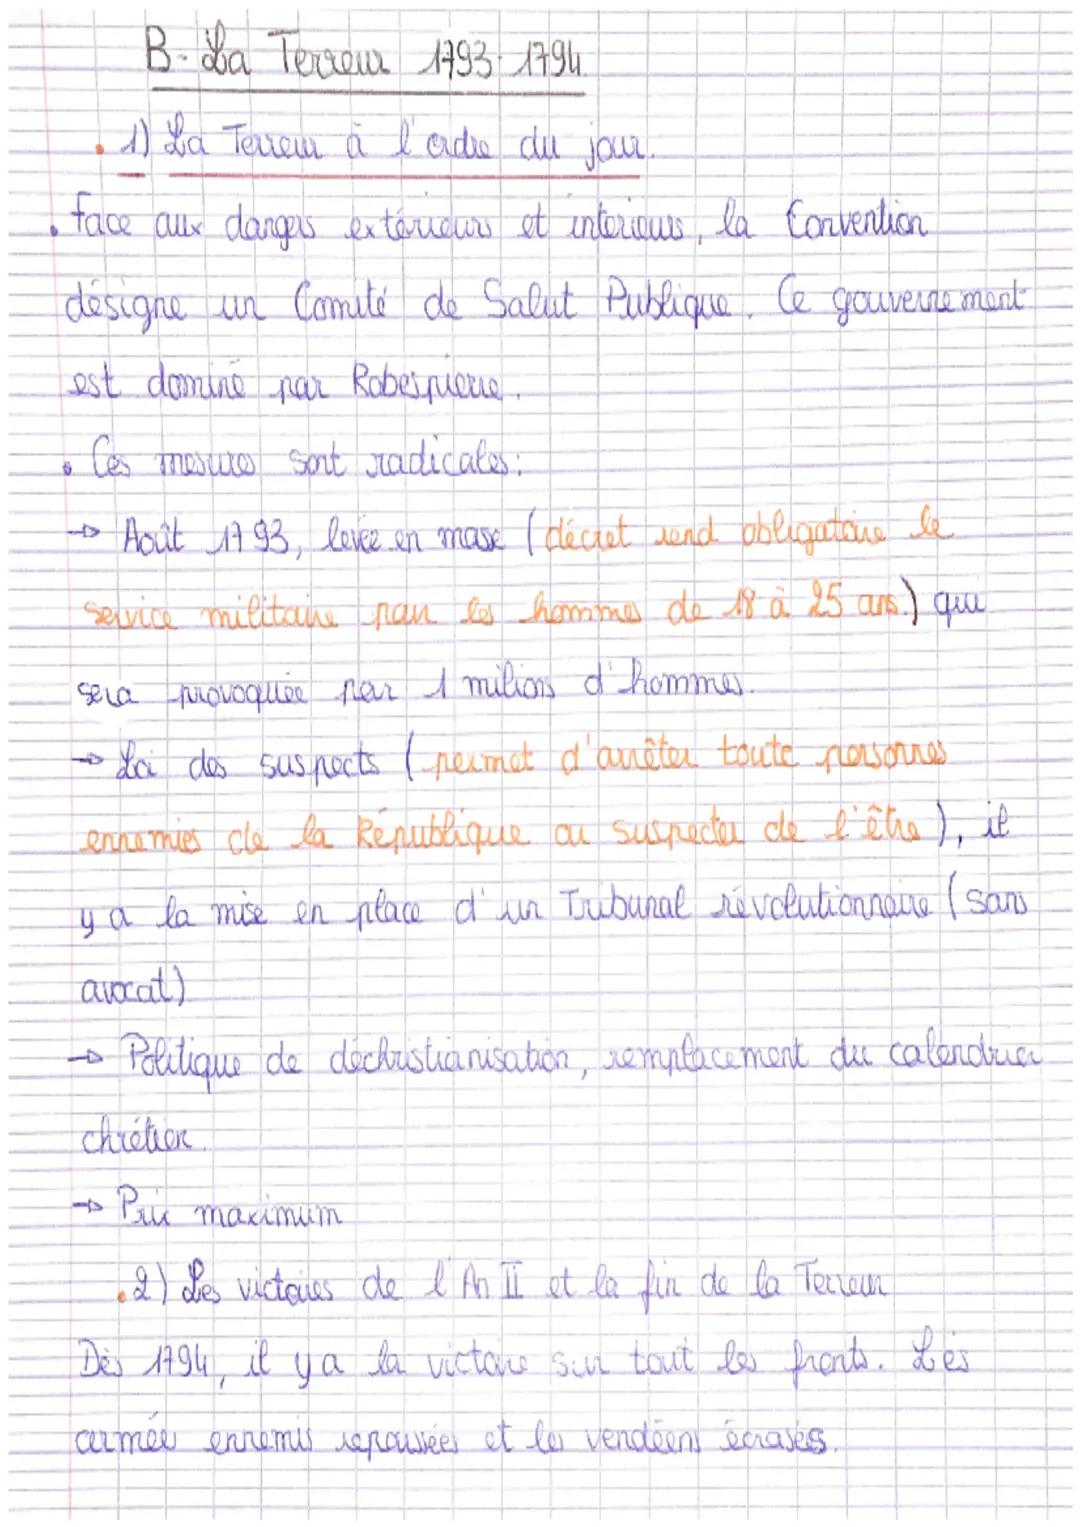 B- La Terreur 1793-1794.
1) La Terreur à l'ordre du jour.
Face aux dangers extérieurs et interieurs, la Convention
désigne un Comité de Salut Publique. Ce gouvernement
est dominé par Robespierre.
Ces mesures sont radicales:
→ Août 1793, levée en masse (décret rend obligatoire le
service militaire pour les hommes de 18 à 25 ans.) qui
sera provoquée par 1 milions d'hommes.
→ Loi des suspects (permet d'arrêter toute personnes
ennemies de la République ou suspecter de l'être), il
y a la mise en place d'un Tribunal révolutionnaire (sans
avocat)
→ Politique de déchristianisation, remplacement du calendrier
chrétien.
→ Prix maximum
2) Les victoires de l'An II et la fin de la Terreur
Dès 1794, il y a la victoire sur tout les fronts. Les
armée ennemis repoussées et les vendéens écrasés.